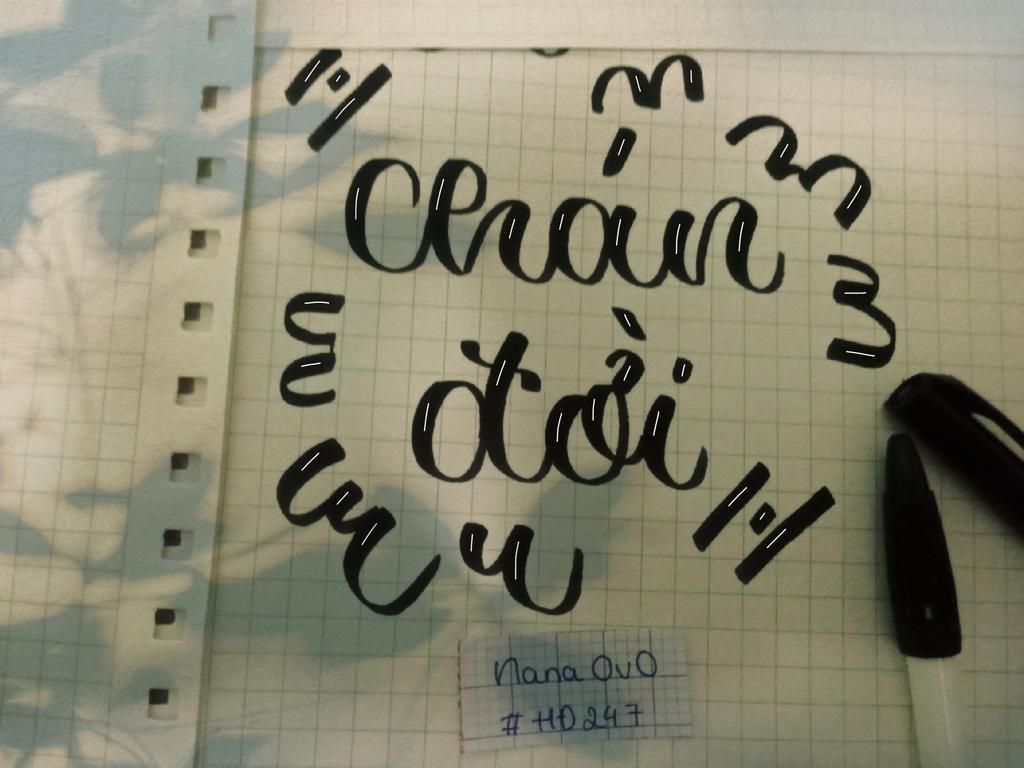 chán
đời
Nana OvO
#HD247